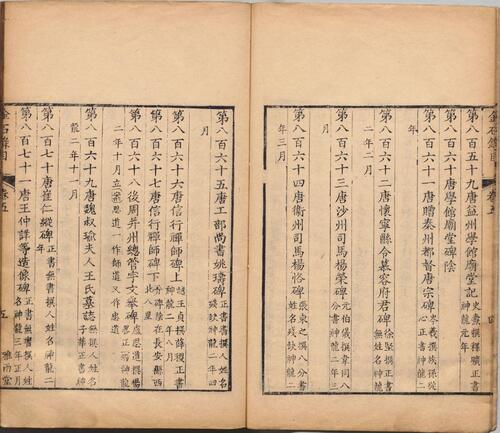 金石錄目 卷五 四
第八百五十九唐益州學館廟堂記
神龍元年
第八百六十唐學館廟堂碑陰
第八百六十一唐贈秦州都督唐宗碑
心正書神龍二年
第八百六十二唐懷寧縣令慕容府君碑 徐堅撰正書
無姓名神龍二年二月
第八百六十三唐沙州司馬楊榮碑 元伯儀撰韋同八
分書神龍二年三月
第八百六十四唐衛州司馬楊恪碑 張柬之撰八分書
姓名殘缺神龍二
年三月
第八百六十五唐工部尚書姚璹碑 正書書撰人姓名
殘缺神龍二年四
月
第八百六十六唐信行禪師碑上 越王貞撰薛稷正書
神龍二年八月
第八百六十七唐信行禪師碑下 碑陰在長安縣西
北八里
第八百六十八後周并州總管宇文舉碑 盧思道撰楊
二年十月立思道一作師道又作忠道
第八百六十九唐魏叔瑜夫人王氏墓誌 無撰人姓名
子華正書神
龍二年十一月
第八百七十唐崔仁縱碑 正書無書撰人姓名
年
第八百七十一唐王仲諜等造像碑 正書無書撰人姓
名神龍三年正月
金石錄目 卷五 五 雅雨堂